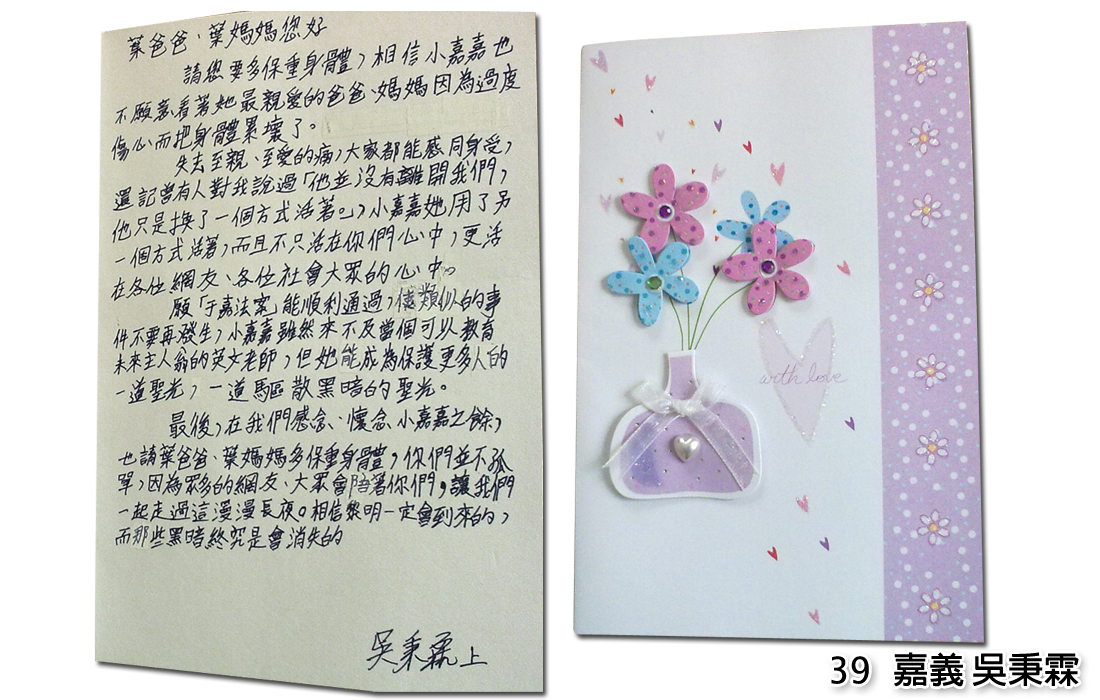 葉爸爸、葉媽媽您好
請您要多保重身體，相信小嘉嘉也
不願意看著她最親愛的爸爸、媽媽因為過度
傷心而把身體累壞了。
失去至親、至愛的痛，大家都能感同身受，
還記曾有人對我說過「他並沒有離開我們，
他只是換了一個方式活著」，小嘉嘉她用了另
一個方式活著，而且不只活在你們心中，更活
在各位網友、各位社會大眾的心中。
願「于嘉法案」能順利通過，讓類似的事
件不要再發生，小嘉嘉雖然來不及當個可以教育
未來主人翁的英文老師，但她能成為保護更多人的
一道聖光，一道驅散黑暗的聖光。
最後，在我們感念、懷念小嘉嘉之餘，
也請葉爸爸、葉媽媽多保重身體，你們並不孤
單，因為眾多的網友、大眾會陪著你們，讓我們
一起走過這漫漫長夜。相信黎明一定會到來的，
而那些黑暗終究是會消失的
吳秉霖 上
with love
39 嘉義 吳秉霖